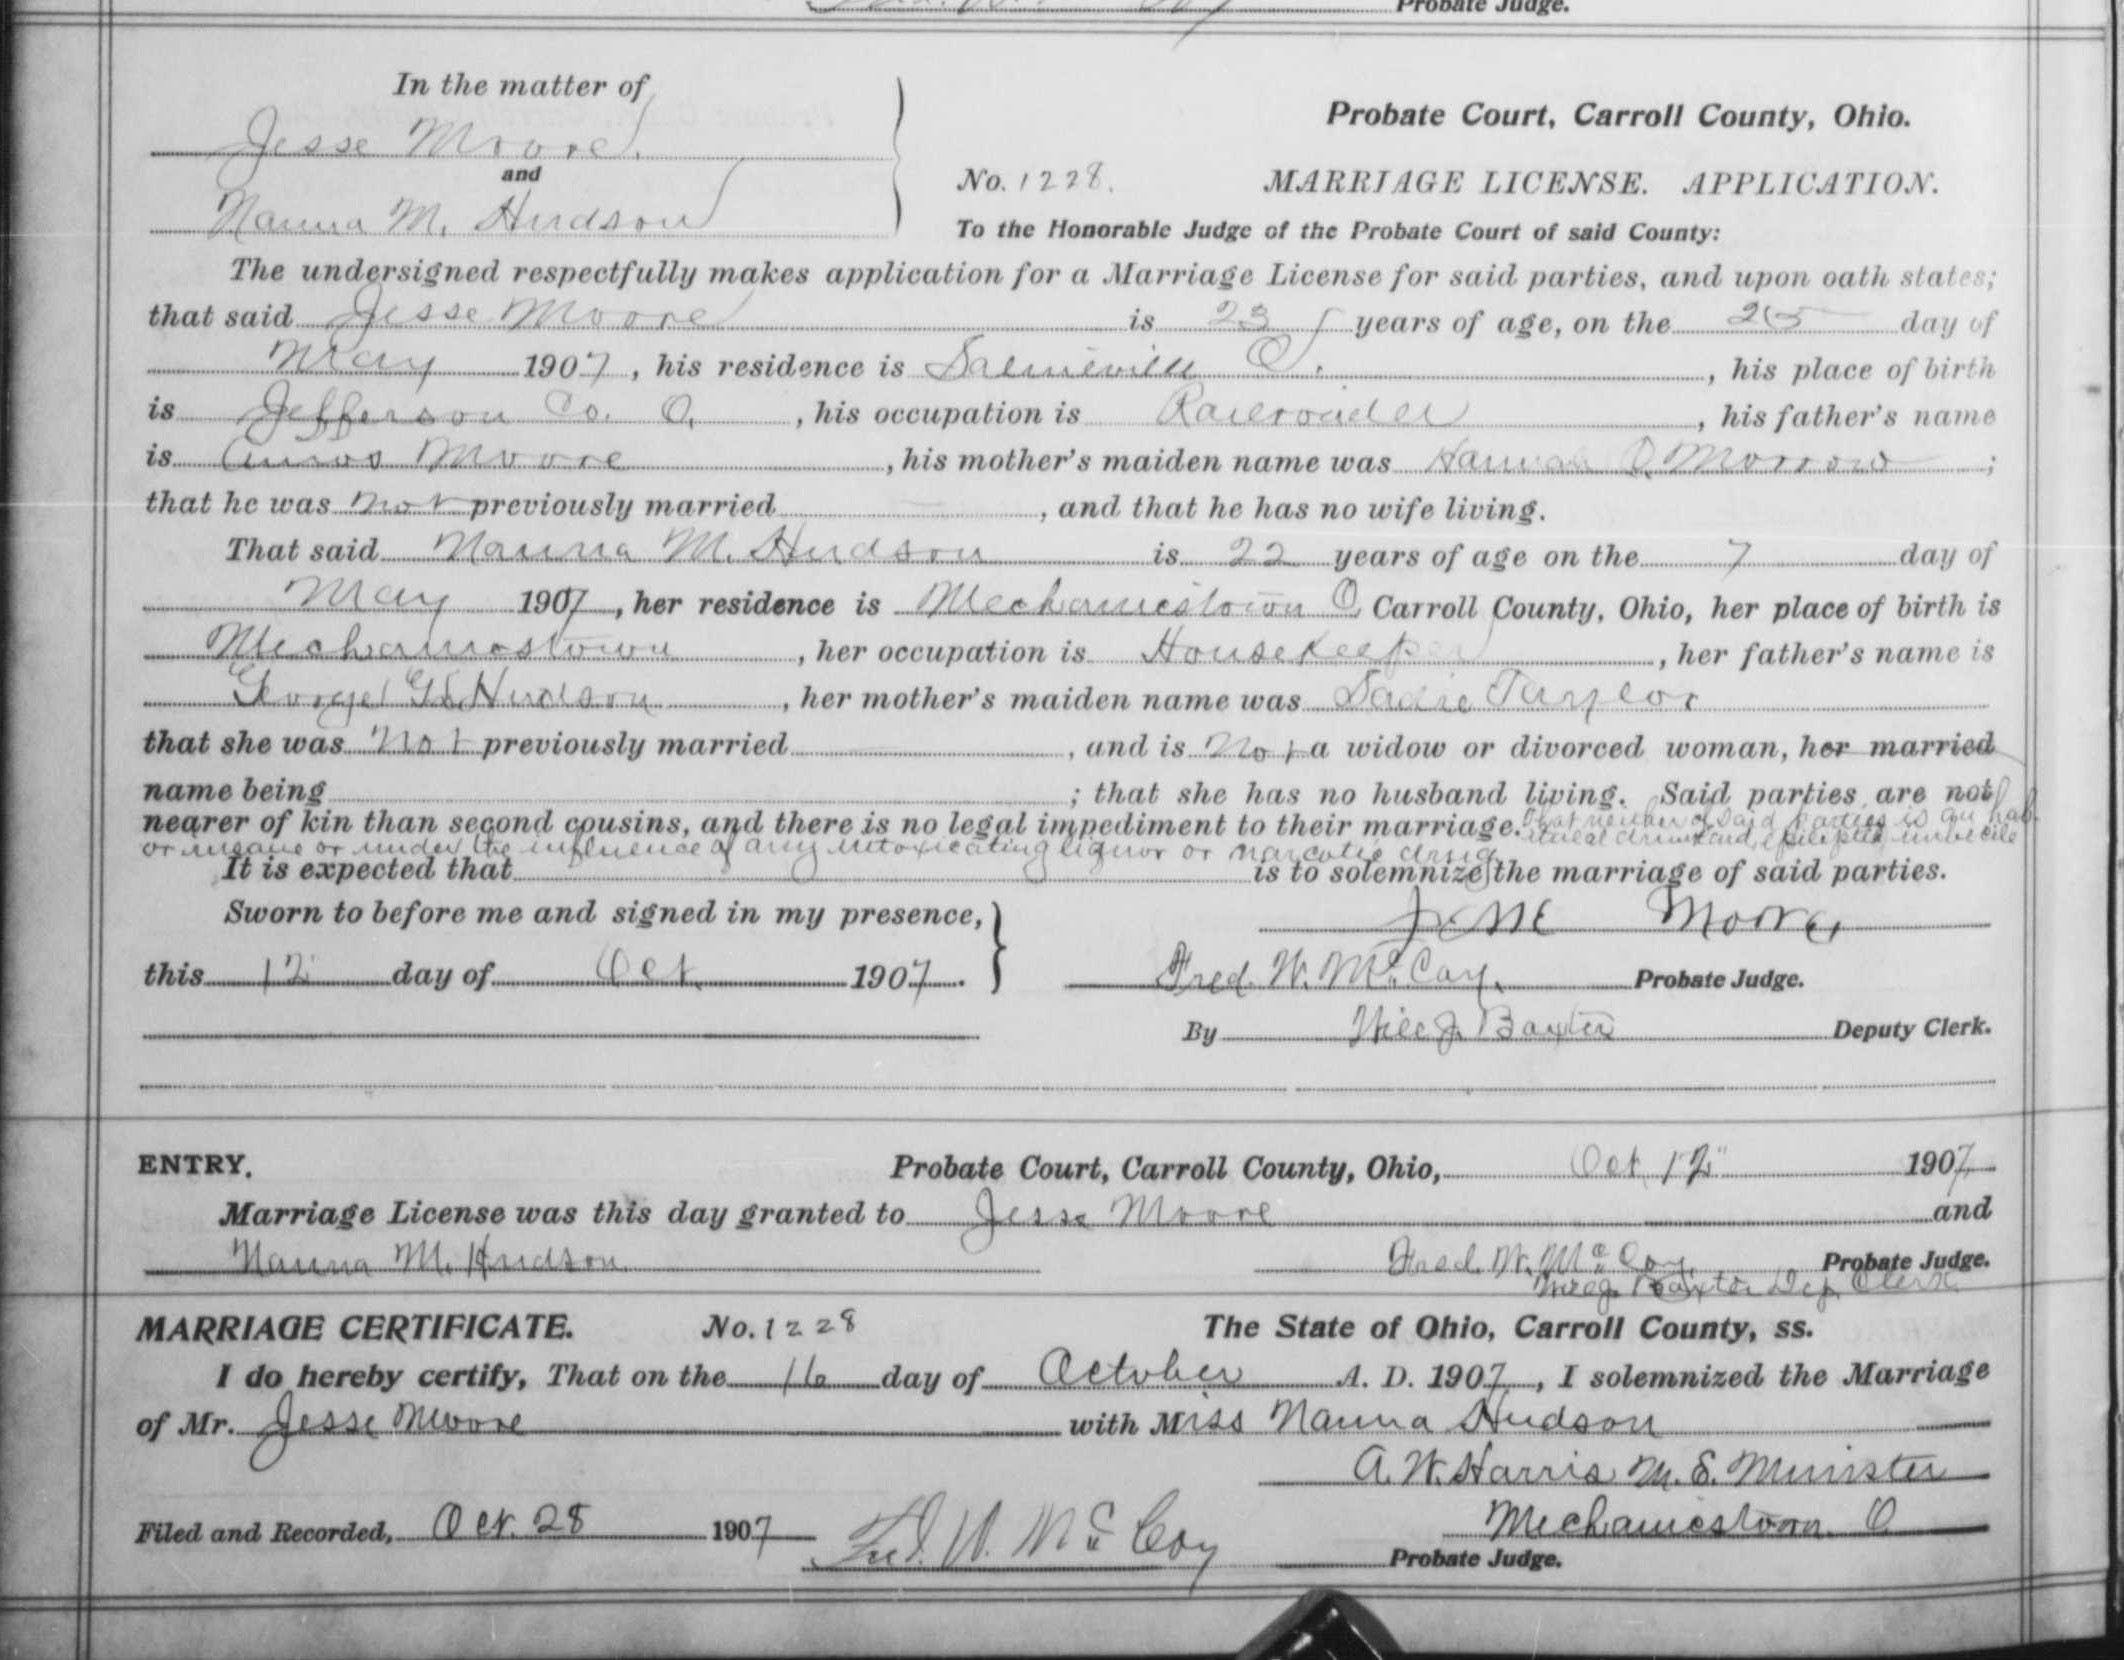 Probate Judge.
In the matter of
Jesse Moore
and
Nanna M. Hudson
Probate Court, Carroll County, Ohio.
No. 1228.   MARRIAGE LICENSE.   APPLICATION.
To the Honorable Judge of the Probate Court of said County:
The undersigned respectfully makes application for a Marriage License for said parties, and upon oath states;
that said Jesse Moore is 23 years of age, on the 25 day of
May 1907, his residence is Salineville O., his place of birth
is Jefferson Co. O., his occupation is Railroader, his father's name
is Amos Moore, his mother's maiden name was Hannah O. Morrow;
that he was not previously married, and that he has no wife living.
That said Nanna M. Hudson is 22 years of age on the 7 day of
May 1907, her residence is Mechanicstown O, Carroll County, Ohio, her place of birth is
Mechanicstown, her occupation is Housekeeper, her father's name is
George Hudson, her mother's maiden name was Sadie Taylor
that she was not previously married, and is not a widow or divorced woman, her married
name being ; that she has no husband living. Said parties are not
nearer of kin than second cousins, and there is no legal impediment to their marriage. that neither of said parties is an hab-
itual drunkard, epileptic, imbecile
or insane or under the influence of any intoxicating liquor or narcotic drug
It is expected that is to solemnize the marriage of said parties.
Sworn to before me and signed in my presence,
Jesse Moore
this 12 day of Oct. 1907.
Fred. W. McCoy. Probate Judge.
By Will J. Baxter Deputy Clerk.
ENTRY.   Probate Court, Carroll County, Ohio, Oct 12" 1907
Marriage License was this day granted to Jesse Moore and
Nanna M. Hudson   Fred. W. McCoy. Probate Judge.
Will J. Baxter Dep. Clerk
MARRIAGE CERTIFICATE.   No. 1228   The State of Ohio, Carroll County, ss.
I do hereby certify, That on the 16 day of October A. D. 1907, I solemnized the Marriage
of Mr. Jesse Moore with Miss Nanna Hudson
A. W. Harris M. E. Minister
Mechanicstown O
Filed and Recorded, Oct. 28 1907   Fred. W. McCoy
Probate Judge.